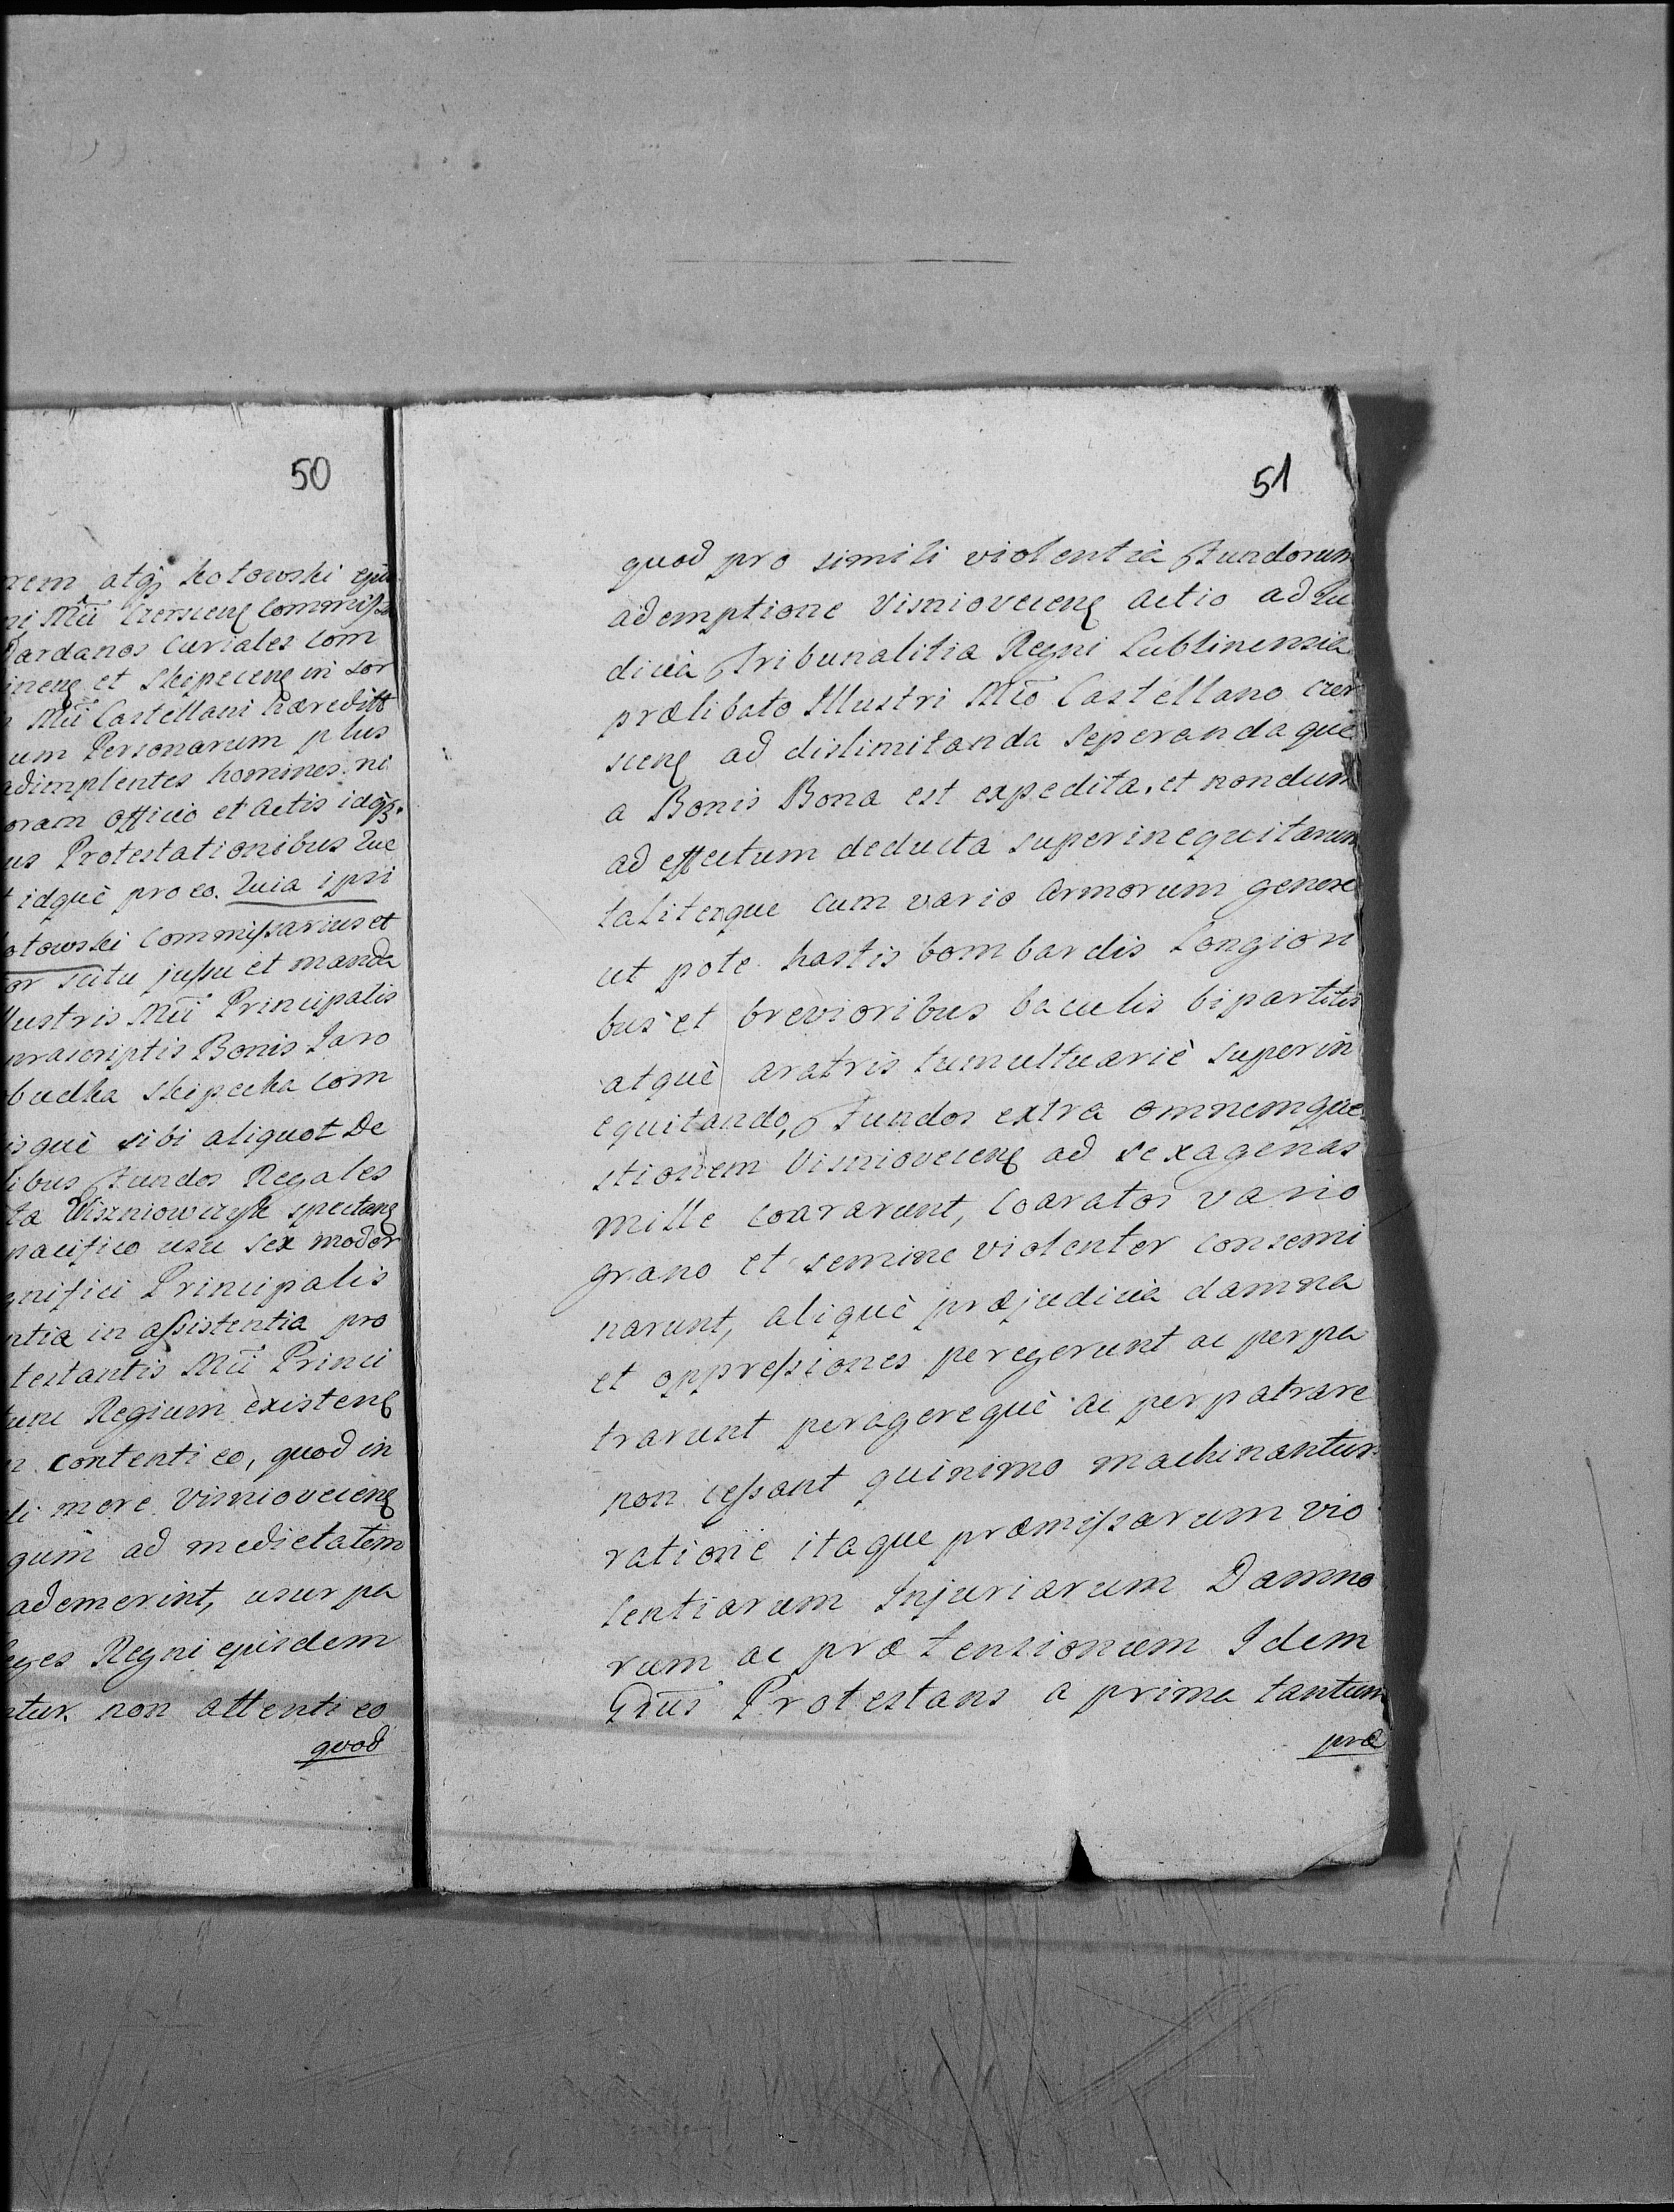 50
rem atq₃ kotowski ejus
ni Mcii Czerscieng Commissa
Hardanos Curiales Com
ineng et Skipeceng in sor
Mcii Castellani hæreditt
um Personarum plus
adimplentes homines ni
oram officio et Actis idq₃
us Protestationibus Quæ
t idquè pro eo. Quia ipsi
otowski Commissarius et
or scitu jussu et manda
llustris Mcii Principalis
præscriptis Bonis Jaro
budka Skipecka com
isquè sibi aliquot De
libus Fundos Regales
ta Wiszniowczyk spectang
pacifico usu sex moder
gnifici Principalis
ntia in assistentia pro
testantis Mcii Princi
tunc Regium existeng
n contenti eo, quod in
li more Visnioveceng
gum ad medietatem
ademerint, usurpa
leges Regni ejusdem
ntur non attenti eo
quod
51
quod pro simili violentia Fundorum
ademptione Visnioveceng Actio ad Ju
dicia Tribunalitia Regni Lublinensia
prælibato Illustri Mco Castellano Czer
sceng ad dislimitanda Seperandaquè
a Bonis Bona est expedita, et nondum
ad effectum deducta superinequitarunt
taliterque cum vario Armorum genere
ut pote hastis bombardis Longiori
bus et brevioribus baculis bipartitis
atquè aratris tumultuariè superin
equitando, Fundos extra omnem que
stionem Visnioveceng ad sexagenas
mille coararunt, Coaratos vario
grano et semine violenter consemi
narunt, aliquè præjudicia damna
et oppressiones peregerunt ac perpe
trarunt peragerequè ac perpatrare
non cessant quinimo machinantur
rationè itaque præmissarum vio
lentiarum Injuriarum Damno
rum ac prætensionum Idem
Gnus Protestans a prima tantum
præ